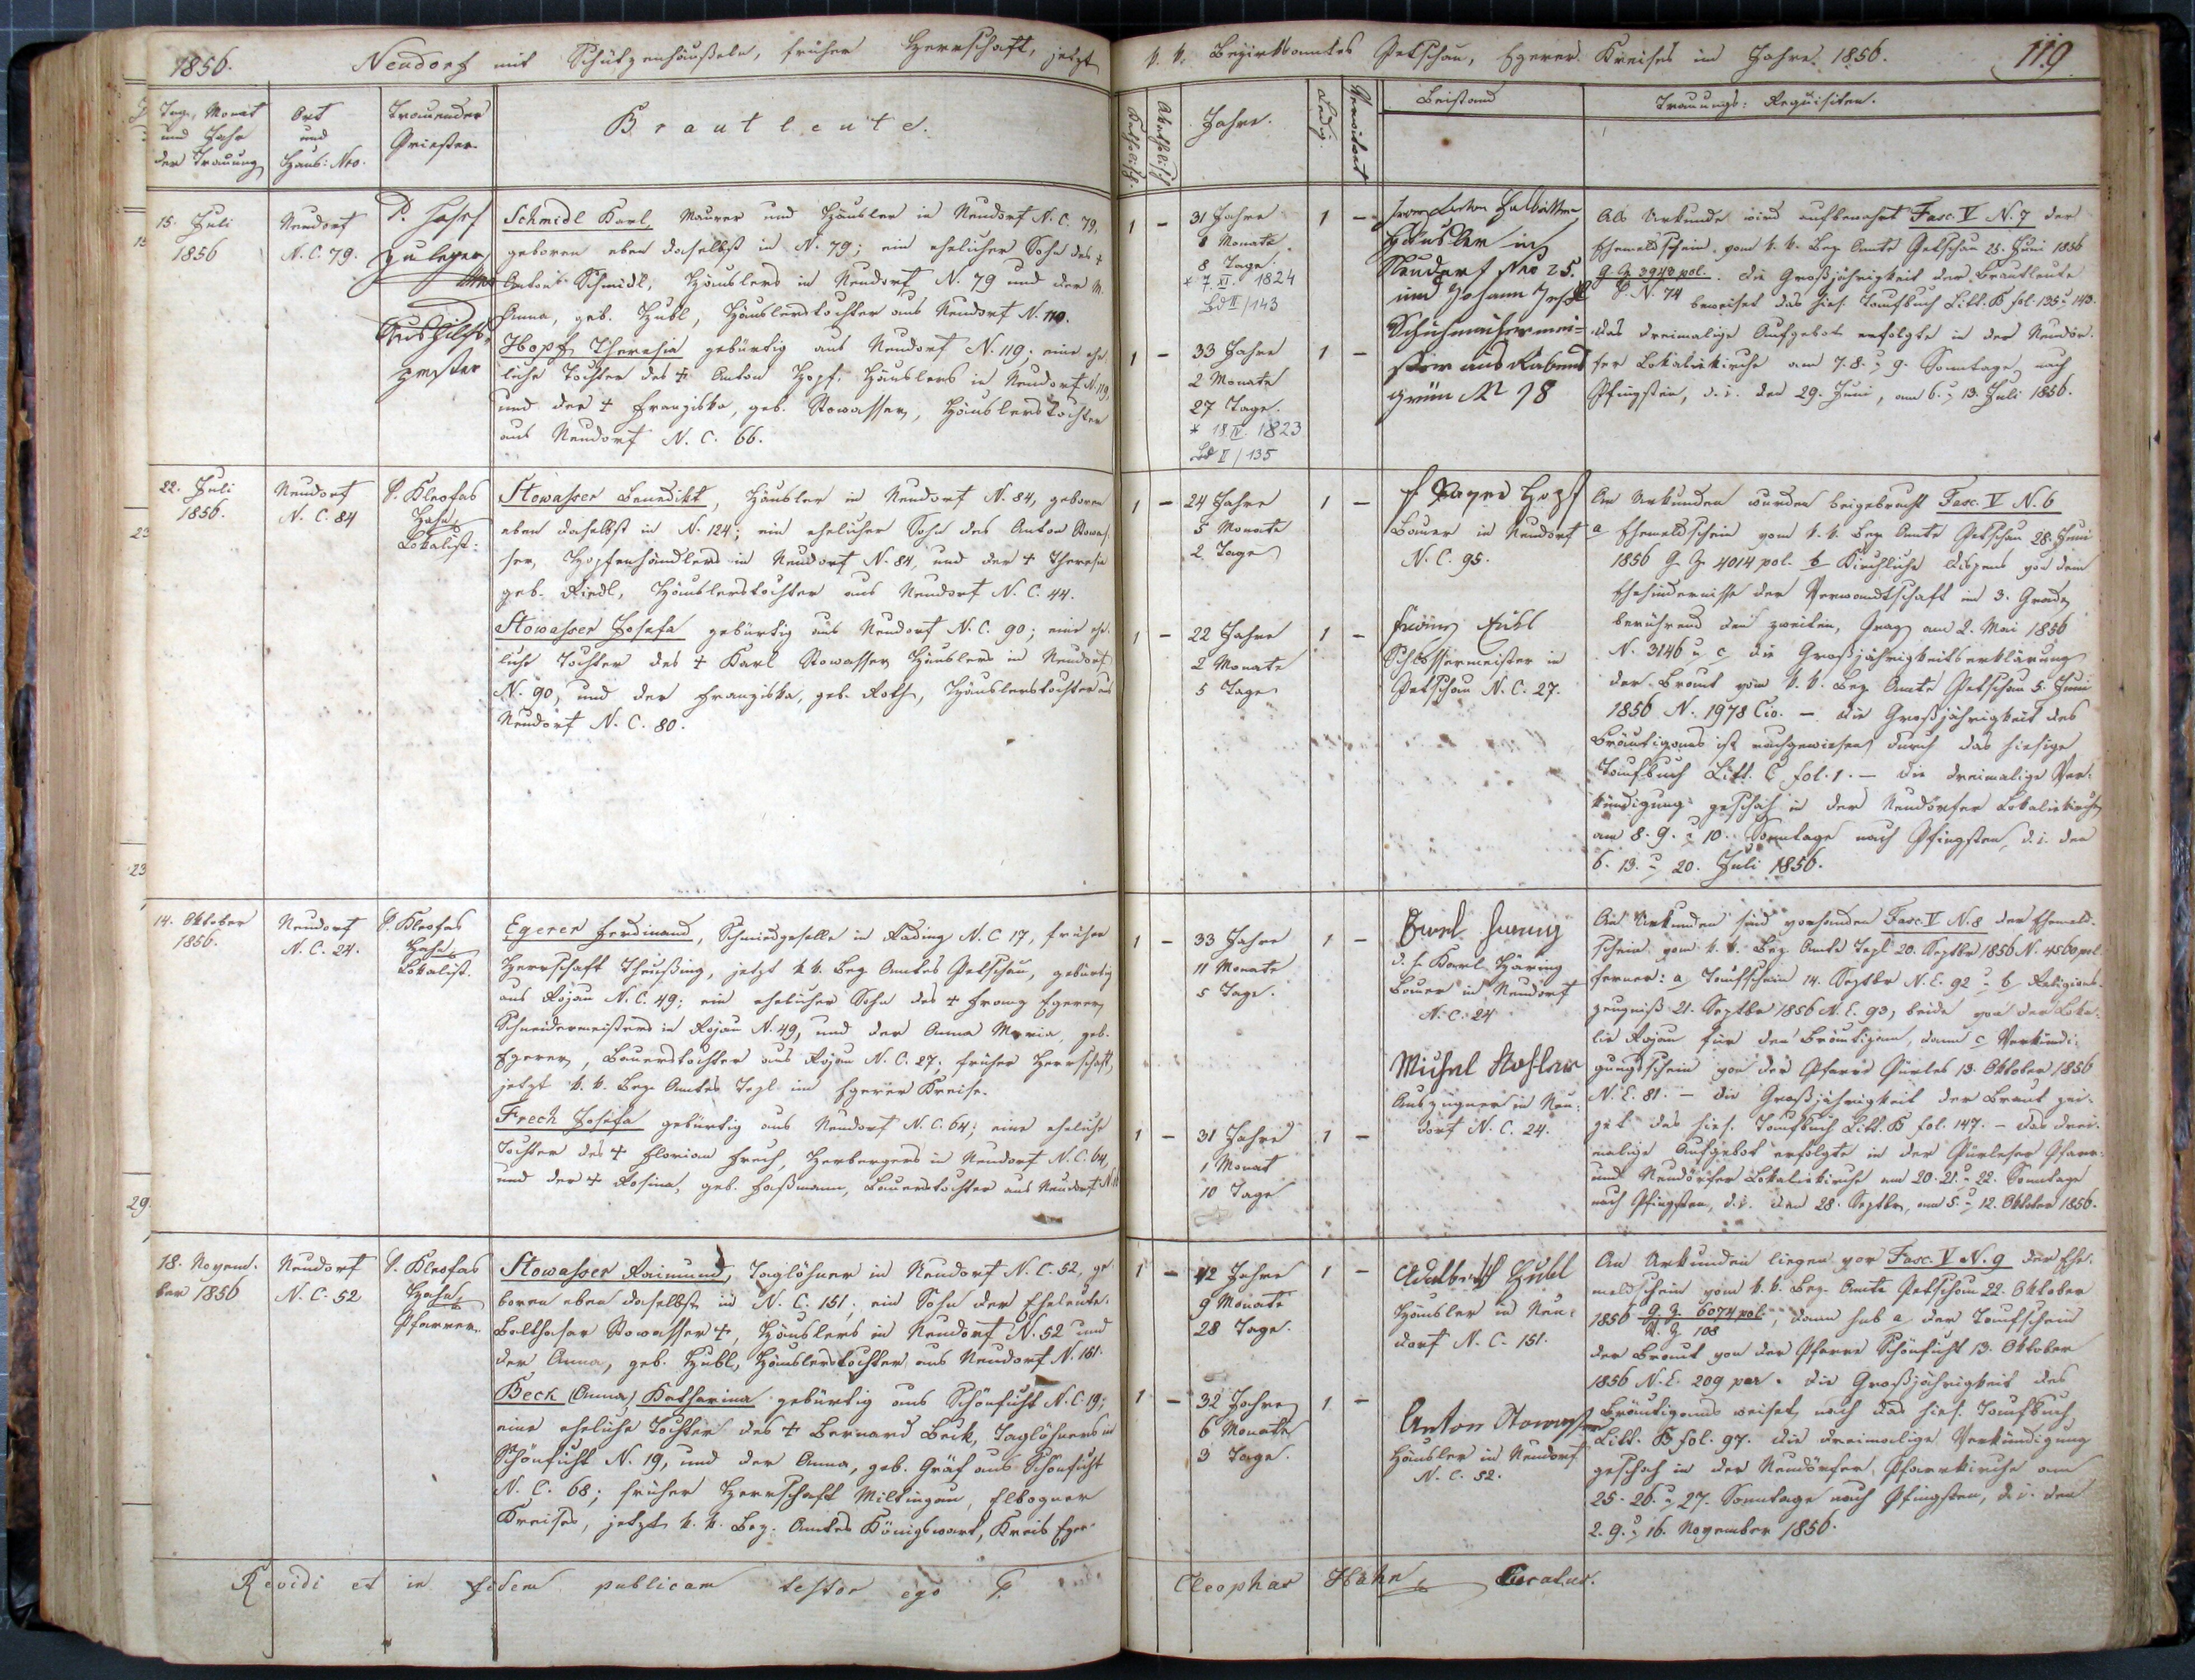 1856. Neudorf mit Schützenhäußeln, früher Herrschaft, jetzt
k. k. Bezirksamtes Petschau, Egerer Kreises im Jahre 1856. 119
Tag, Monat
und Jahr
der Trauung
Ort
und
Haus: Nro.
Trauender
Priester
Brautleute.
Katholisch.
Akatholisch
Jahre.
Ledig.
Verwitwet
Beistand
Trauungs: Requisiten.
15. Juli
1856
Neudorf
N. C. 79.
P. Josef
Aushilfs-
priester
Schmidl Karl, Maurer und Häusler in Neudorf N. C. 79,
geboren eben daselbst in N. 79; ein ehelicher Sohn des †
Anton Schmidl, Häuslers in Neudorf N. 79 und der
Anna, geb. Hubl, Häuslerstochter aus Neudorf N. 110.
Hopf Theresia gebürtig aus Neudorf N. 119; eine ehe
liche Tochter des † Anton Hopf, Häuslers in Neudorf N. 119,
und der † Franziska, geb. Stowasser, Häuslerstochter
aus Neudorf N. C. 66.
1 -
31 Jahre
8 Monate
8 Tage.
* 7. XI. 1824
Bd II/143
1 -
1 -
33 Jahre
2 Monate
27 Tage.
* 18 IV. 1823
Bd II/135
1 -
Häusler in
Neudorf Nro 25.
und Johann
Schuhmachermei-
ster aus
grün N 18
Als Urkunde wird aufbewahrt Fasc. V N. 7 der
Ehemeldschein vom k. k. Bez. Amte Petschau 23. Juni 1856
G. Z. 3948 pol. Die Großjährigkeit der Brautleute
P. N. 74 beweiset das hies. Taufbuch Litt. B fol. 135 u 143.
das dreimalige Aufgebot erfolgte in der Neudor-
fer Lokaliekirche am 7. 8. u 9. Sonntage nach
Pfingsten, d. i. den 29. Juni, am 6. u 13. Juli 1856.
22. Juli
1856.
Neudorf
N. C. 84
P. Kleofas
Hahn,
Lokalist:
Stowasser Benedikt, Häusler in Neudorf N. 84, geboren
eben daselbst in N. 124; ein ehelicher Sohn des Anton Stowas-
ser, Hopfenhändlers in Neudorf N. 84, und der † Theresia
geb. Riedl, Häuslerstochter aus Neudorf N. C. 44.
Stowasser Josefa gebürtig aus Neudorf N. C. 90; eine ehe-
liche Tochter des † Karl Stowasser Häuslers in Neudorf
N. 90, und der Franziska, geb. Roth, Häuslerstochter aus
Neudorf N. C. 80.
1 -
24 Jahre
3 Monate
2 Tage
1 -
1 -
22 Jahre
2 Monate
5 Tage
1 -
Hopf
Bauer in Neudorf
N. C. 95.
Schlossermeister in
Petschau N. C. 27.
An Urkunden wurden beigebracht Fasc. V N. 6
a Ehemeldschein vom k. k. Bez. Amte Petschau 28. Juni
1856 G. Z. 4014 pol. b Kirchliche Dispens von dem
Ehehindernisse der Verwandtschaft im 3. Grade
berührend den zweiten, Prag am 2. Mai 1856
N. 3146 u c die Großjährigkeitserklärung
der Braut vom k. k. Bez. Amte Petschau 5. Juni
1856 N. 1978 Civ. - Die Großjährigkeit des
Bräutigams ist nachgewiesen durch das hiesige
Taufbuch Litt. C fol. 1. - die dreimalige Ver-
kündigung geschah in der Neudorfer Lokaliekirche
am 8. 9. u 10. Sonntage nach Pfingsten, d. i. den
6. 13. u 20. Juli 1856.
14. Oktober
1856.
Neudorf
N. C. 24.
P. Kleofas
Hahn,
Lokalist.
Egerer Ferdinand, Schmiedgeselle in Rading N. C. 17, früher
Herrschaft Theußing, jetzt k. k. Bez. Amtes Petschau, gebürtig
aus Rojau N. C. 49; ein ehelicher Sohn des † Franz Egerer
Schneidermeisters in Rojau N. 49, und der Anna Maria, geb.
Egerer, Bauerstochter aus Rojau N. C. 27; früher Herrschaft,
jetzt k. k. Bez. Amtes Tepl im Egerer Kreise.
Frech Josefa gebürtig aus Neudorf N. C. 64; eine eheliche
Tochter des † Florian Frech, Herbergers in Neudorf N. C. 64,
und der † Rosina, geb. Haßmann, Bauerstochter aus Neudorf N.
1 -
33 Jahre
11 Monate
5 Tage.
1 -
1 -
31 Jahre
1 Monat
10 Tage
1 -
d. h. Karl Häring
Bauer in Neudorf
N. C. 24
Michal
Auszügner in Neu-
dorf N. C. 24.
An Urkunden sind vorhanden Fasc. V N. 8 der Ehemeld-
schein vom k. k. Bez. Amte Tepl 20. Septbr 1856 N. 4560 pol.
ferner: a Taufschein 14. Septbr N. E. 92 u b Religions-
zeugniß 21. Septbr 1856 N. E. 93, beide von der Loka-
lie Rojau für den Bräutigam, dann c Verkündi-
gungsschein von der Pfarre Pürles 13. Oktober 1856
N. E. 81. - die Großjährigkeit der Braut zei-
get das hies. Taufbuch Litt. B fol. 147. - das drei-
malige Aufgebot erfolgte in der Pürleser Pfarr-
und Neudorfer Lokaliekirche am 20. 21. u 22. Sonntage
nach Pfingsten, d. i. den 28. Septbr, am 5. u 12. Oktober 1856.
18. Novem-
ber 1856
Neudorf
N. C. 52
P. Kleofas
Hahn,
Pfarrer.
Stowasser Raimund, Taglöhner in Neudorf N. C. 52, ge-
boren eben daselbst in N. C. 151; ein Sohn der Eheleute:
Balthasar Stowasser †, Häuslers in Neudorf N. 52 und
der Anna, geb. Hubl, Häuslerstochter aus Neudorf N. 151.
Beck (Anna) Katharina gebürtig aus Schönficht N. C. 19;
eine eheliche Tochter des † Bernard Beck, Taglöhners in
Schönficht N. 19, und der Anna, geb. Gräf aus Schönficht
N. C. 68; früher Herrschaft Miltingau, Elbogner
Kreises, jetzt k. k. Bez. Amtes Königswart, Kreis Eger.
1 -
42 Jahre
9 Monate
28 Tage.
1 -
1 -
32 Jahre
6 Monate
3 Tage.
1 -
Adalbert Hubl
Häusler in Neu-
dorf N. C. 151.
Anton Stowasser
Häusler in Neudorf
N. C. 52.
An Urkunden liegen vor Fasc. V N. 9 der Ehe-
meldschein vom k. k. Bez. Amte Petschau 22. Oktober
1856 G. Z. 6074 pol., dann sub a der Taufschein
P. Z 108
der Braut von der Pfarre Schönficht 13. Oktober
1856 N. E. 209 par. Die Großjährigkeit des
Bräutigams weiset nach das hies. Taufbuch
Litt. B fol. 97. die dreimalige Verkündigung
geschah in der Neudorfer Pfarrkirche am
25. 26. u 27. Sonntage nach Pfingsten, d. i. den
2. 9. u 16. November 1856.
Revidi et in fidem publicam testor ego P. Cleophas Hahn, Curatus.